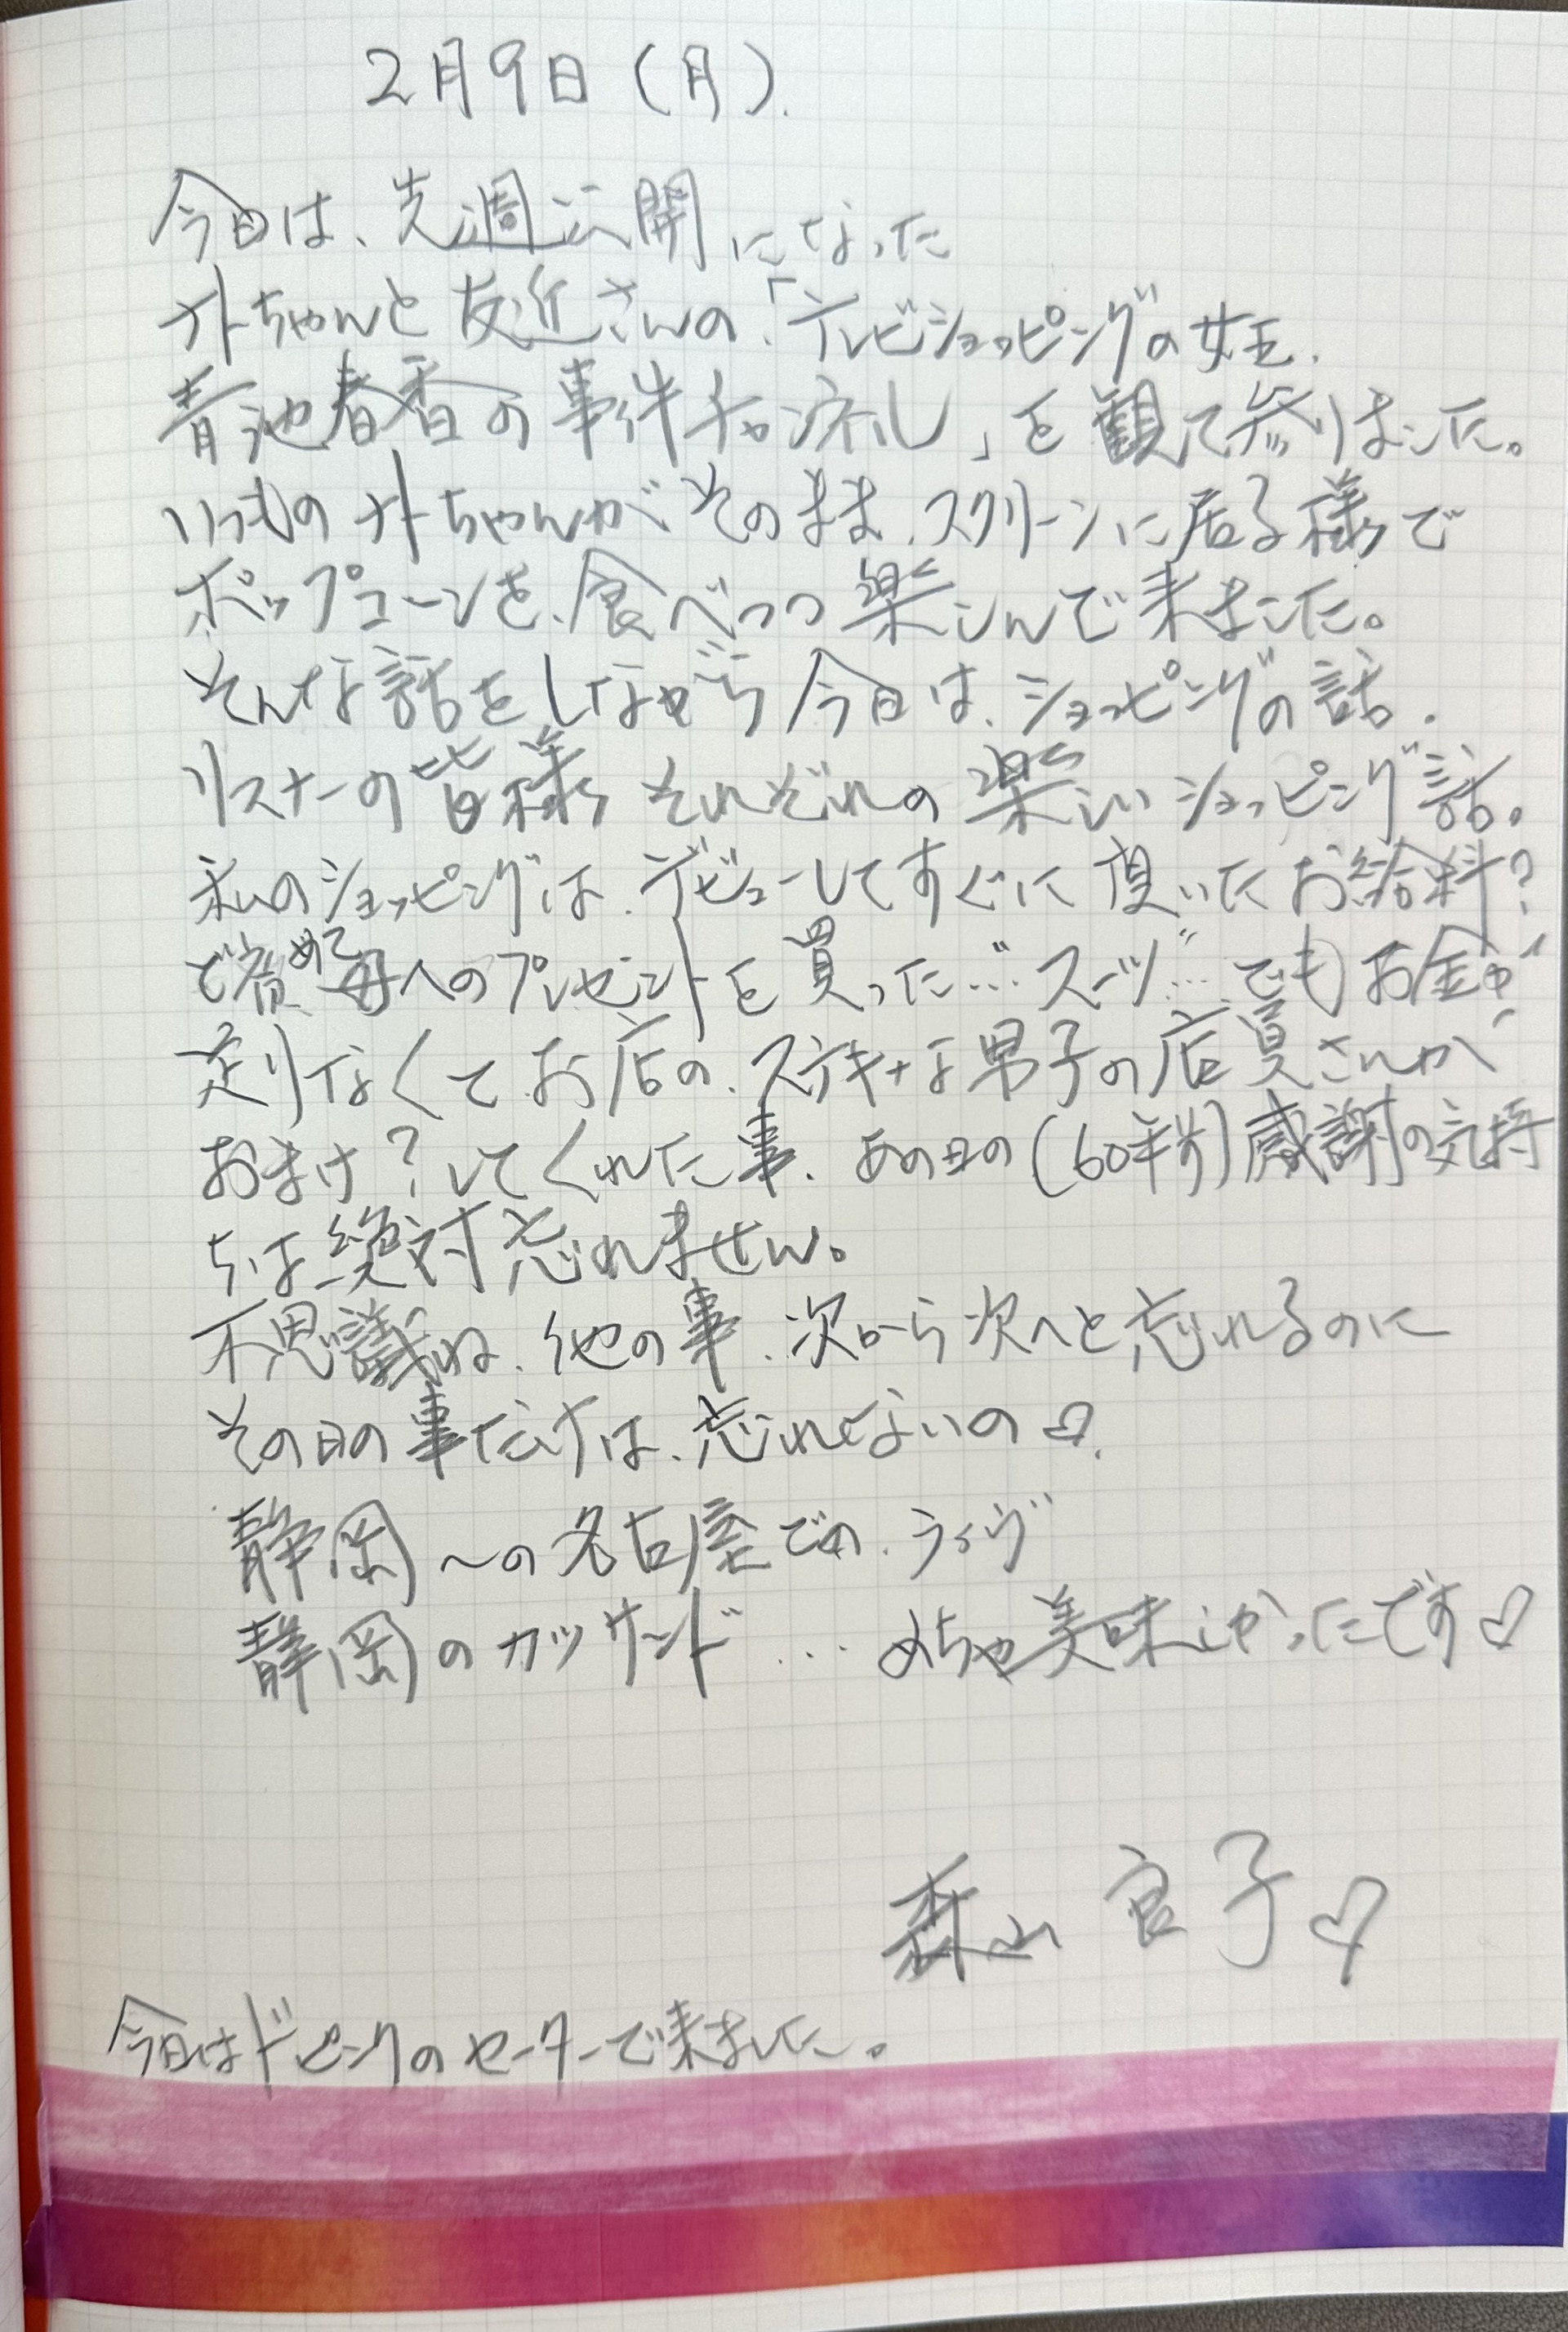 2月9日(月).
今日は、先週公開になった
ナオちゃんと友近さんの、「テレビショッピングの女王.
青池春香の事件チャンネル」を観て参りました。
いつものナオちゃんがそのまま、スクリーンに居る様で
ポップコーンを、食べつつ楽しんで来ました。
そんな話をしながら今日は、ショッピングの話.
リスナーの皆様それぞれの楽しいショッピング話。
私のショッピングは、デビューしてすぐに頂いたお給料?
で初めて母へのプレゼントを買った…スーツ…でもお金が
足りなくてお店の、ステキな男子の店員さんが
おまけ?してくれた事、あの日の(60年前)感謝の気持
ちは絶対忘れません。
不思議ね、他の事、次から次へと忘れるのに
その日の事だけは、忘れてないの♡.
静岡〜の名古屋での、ライヴ
静岡のカツサンド…めちゃ美味しかったです♡
森山良子♡
今日はドピンクのセーターで来ました。